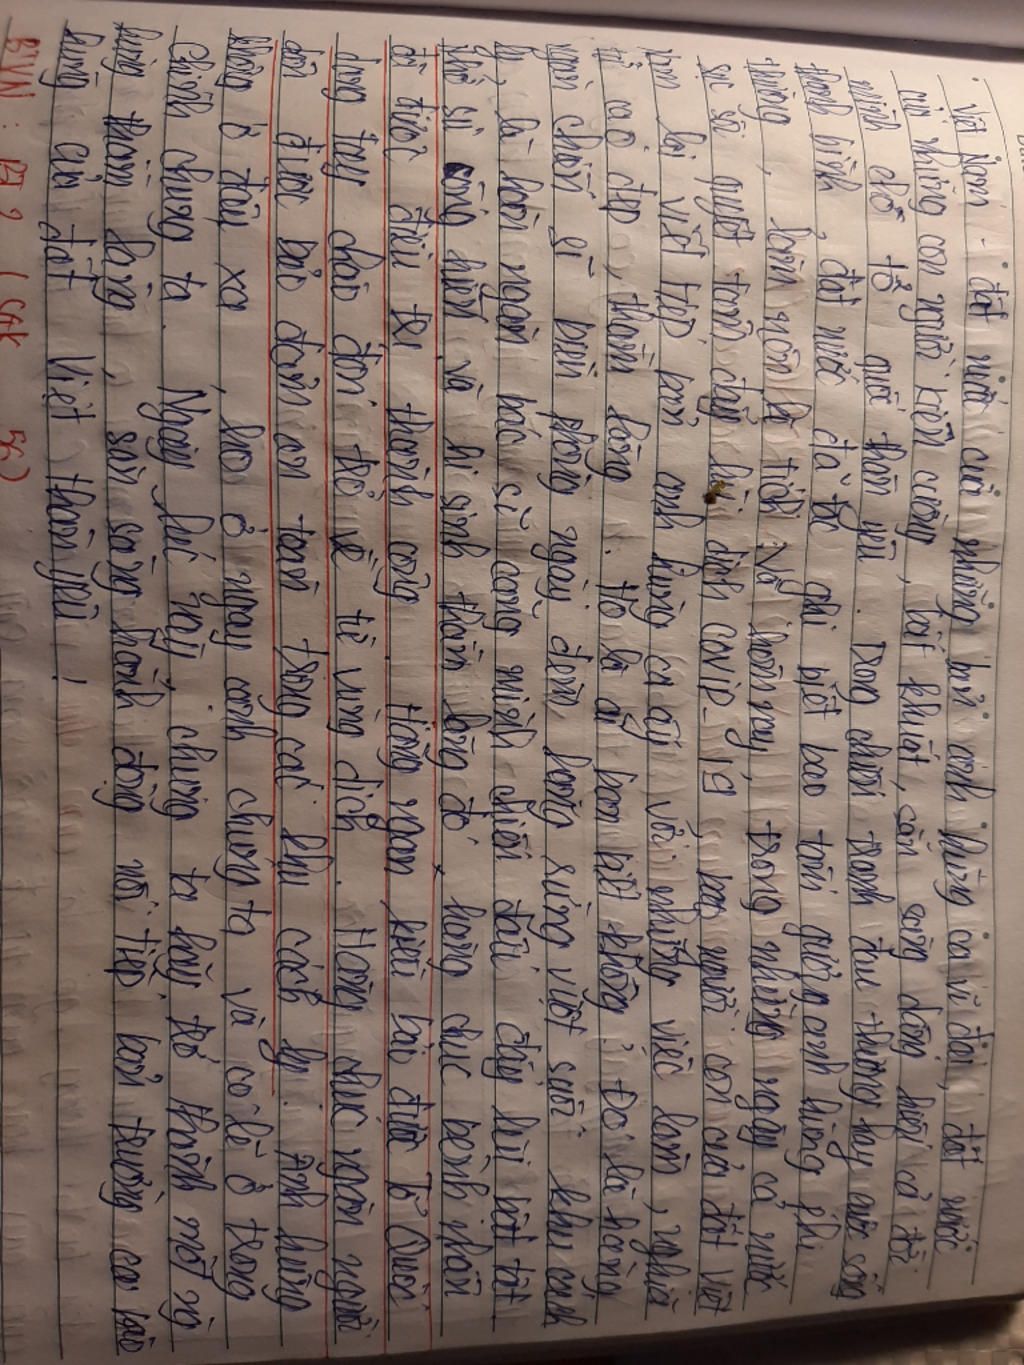 Việt Nam - đất nước của những bản anh hùng ca vĩ đại, đất nước
của những con người kiên cường, bất khuất, sẵn sàng dâng hiến cả đời
mình cho tổ quốc thân yêu. Trong chiến tranh đau thương hay cuộc sống
thanh bình, đất nước đã ghi biết bao tấm gương anh hùng phi
thường, làm nên kỳ tích. Và hôm nay, trong những ngày cả nước
sục sôi quyết tâm đẩy lùi dịch COVID-19 bao người con của đất Việt
lại viết tiếp bản anh hùng ca ấy với những việc làm, nghĩa
cử cao đẹp, thầm lặng. Họ là ai bạn biết không? Đó là hàng
ngàn chiến sĩ biên phòng ngày đêm băng rừng vượt suối
là hàng ngàn bác sĩ căng mình chiến đấu đẩy lùi
Nhờ sự cống hiến và hi sinh thầm lặng đó hàng chục bệnh nhân
đã được điều trị thành công. Hàng ngàn kiều bào được Tổ Quốc
dang tay chào đón trở về từ vùng dịch. Hàng chục ngàn người
dân được bảo đảm an toàn trong các khu cách ly. Anh hùng
không ở đâu xa, họ ở ngay cạnh chúng ta và có lẽ ở trong
chính chúng ta. Ngay lúc này, chúng ta hãy trở thành một
hùng thầm lặng, sẵn sàng hành động nối tiếp bản trường ca hào
hùng của đất Việt thân yêu!
BTVN: (SGK 56)